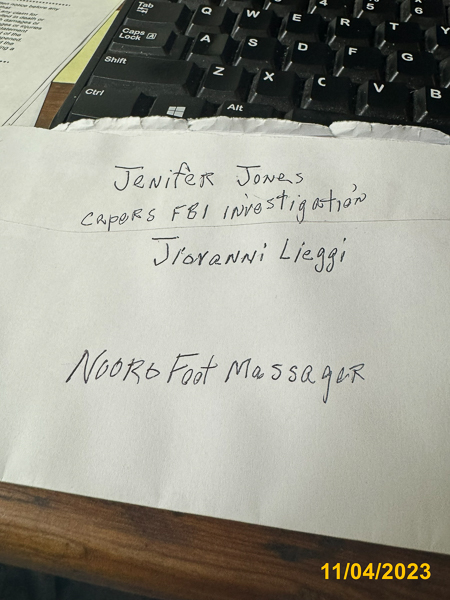 Tab
Q W E R T Y
4 5 6
Caps Lock A
A S D F G
Shift
Z X C V B
Ctrl
Alt
Jenifer Jones
CAPERS FBI investigation
Jiovanni Lieggi
NOORO Foot Massager
11/04/2023